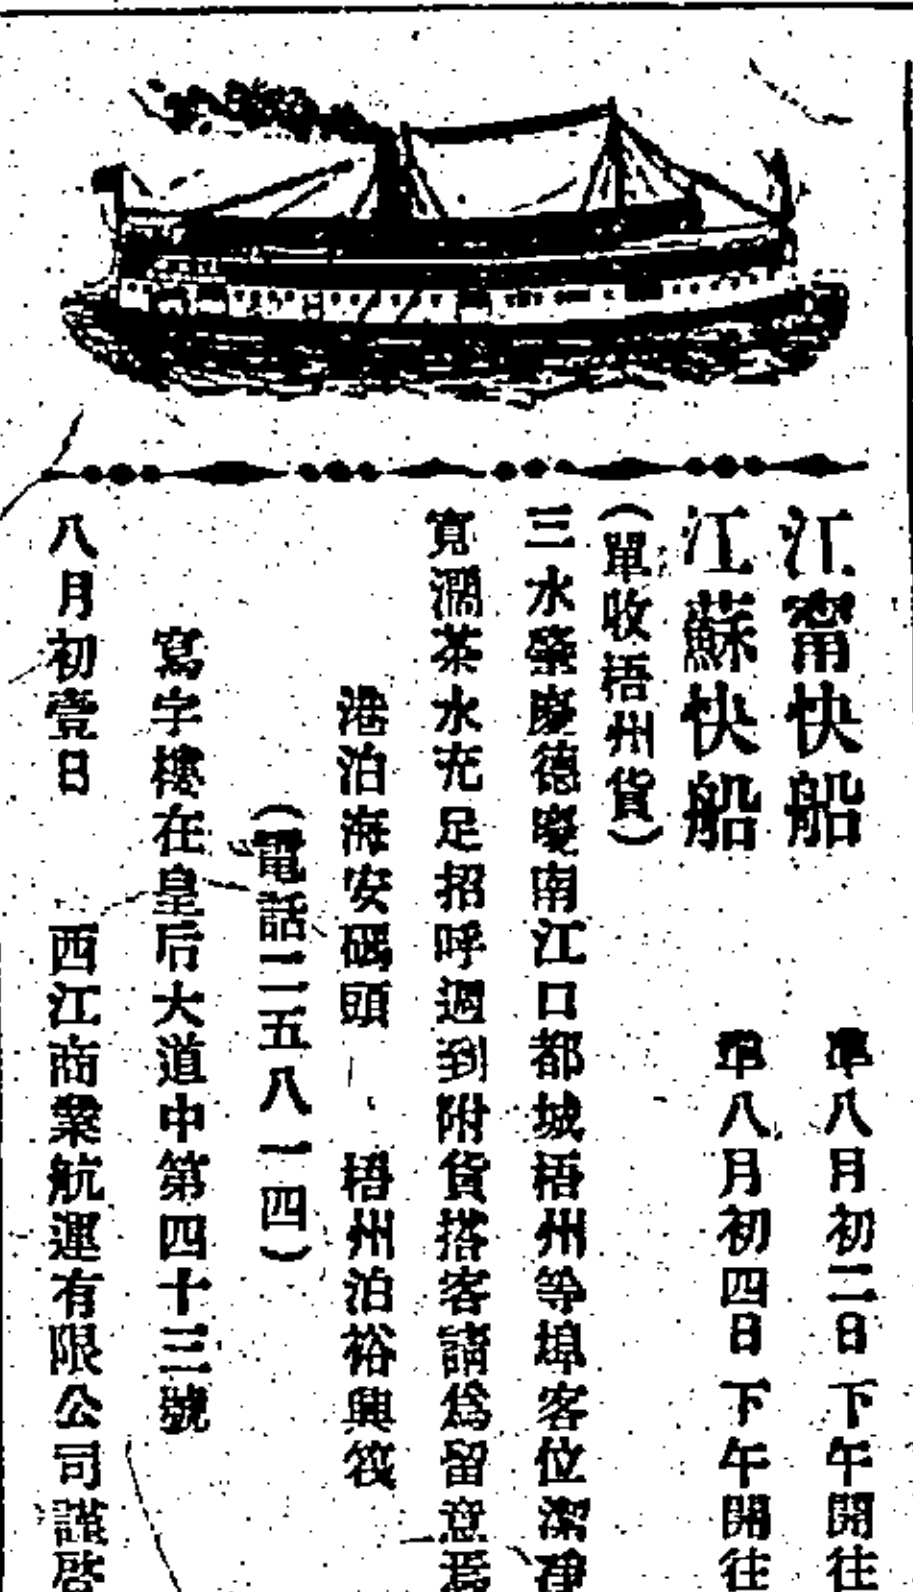 江甯快船 準八月初二日下午開往
江蘇快船 準八月初四日下午開往
(單收梧州貨)
三水肇慶德慶南江口都城梧州等埠客位潔淨
寬濶茶水充足招呼週到附貨搭客請爲留意焉
港泊海安碼頭 梧州泊裕興筏
(電話二五八一四)
寫字樓在皇后大道中第四十三號
八月初壹日 西江商業航運有限公司謹啓